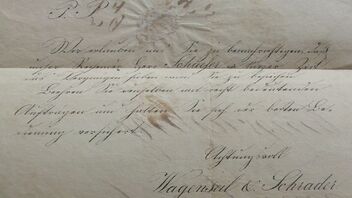 P. P.
Wir erlauben uns Sie zu benachrichtigen, daß
unser Reisender Herr Schäfer in einiger Zeit
das Vergnügen haben wird Sie zu besuchen
Beehren Sie denselben mit recht bedeutenden
Aufträgen und halten Sie sich der besten Be-
dienung versichert.
Achtungsvoll
Wagenseil & Schrader